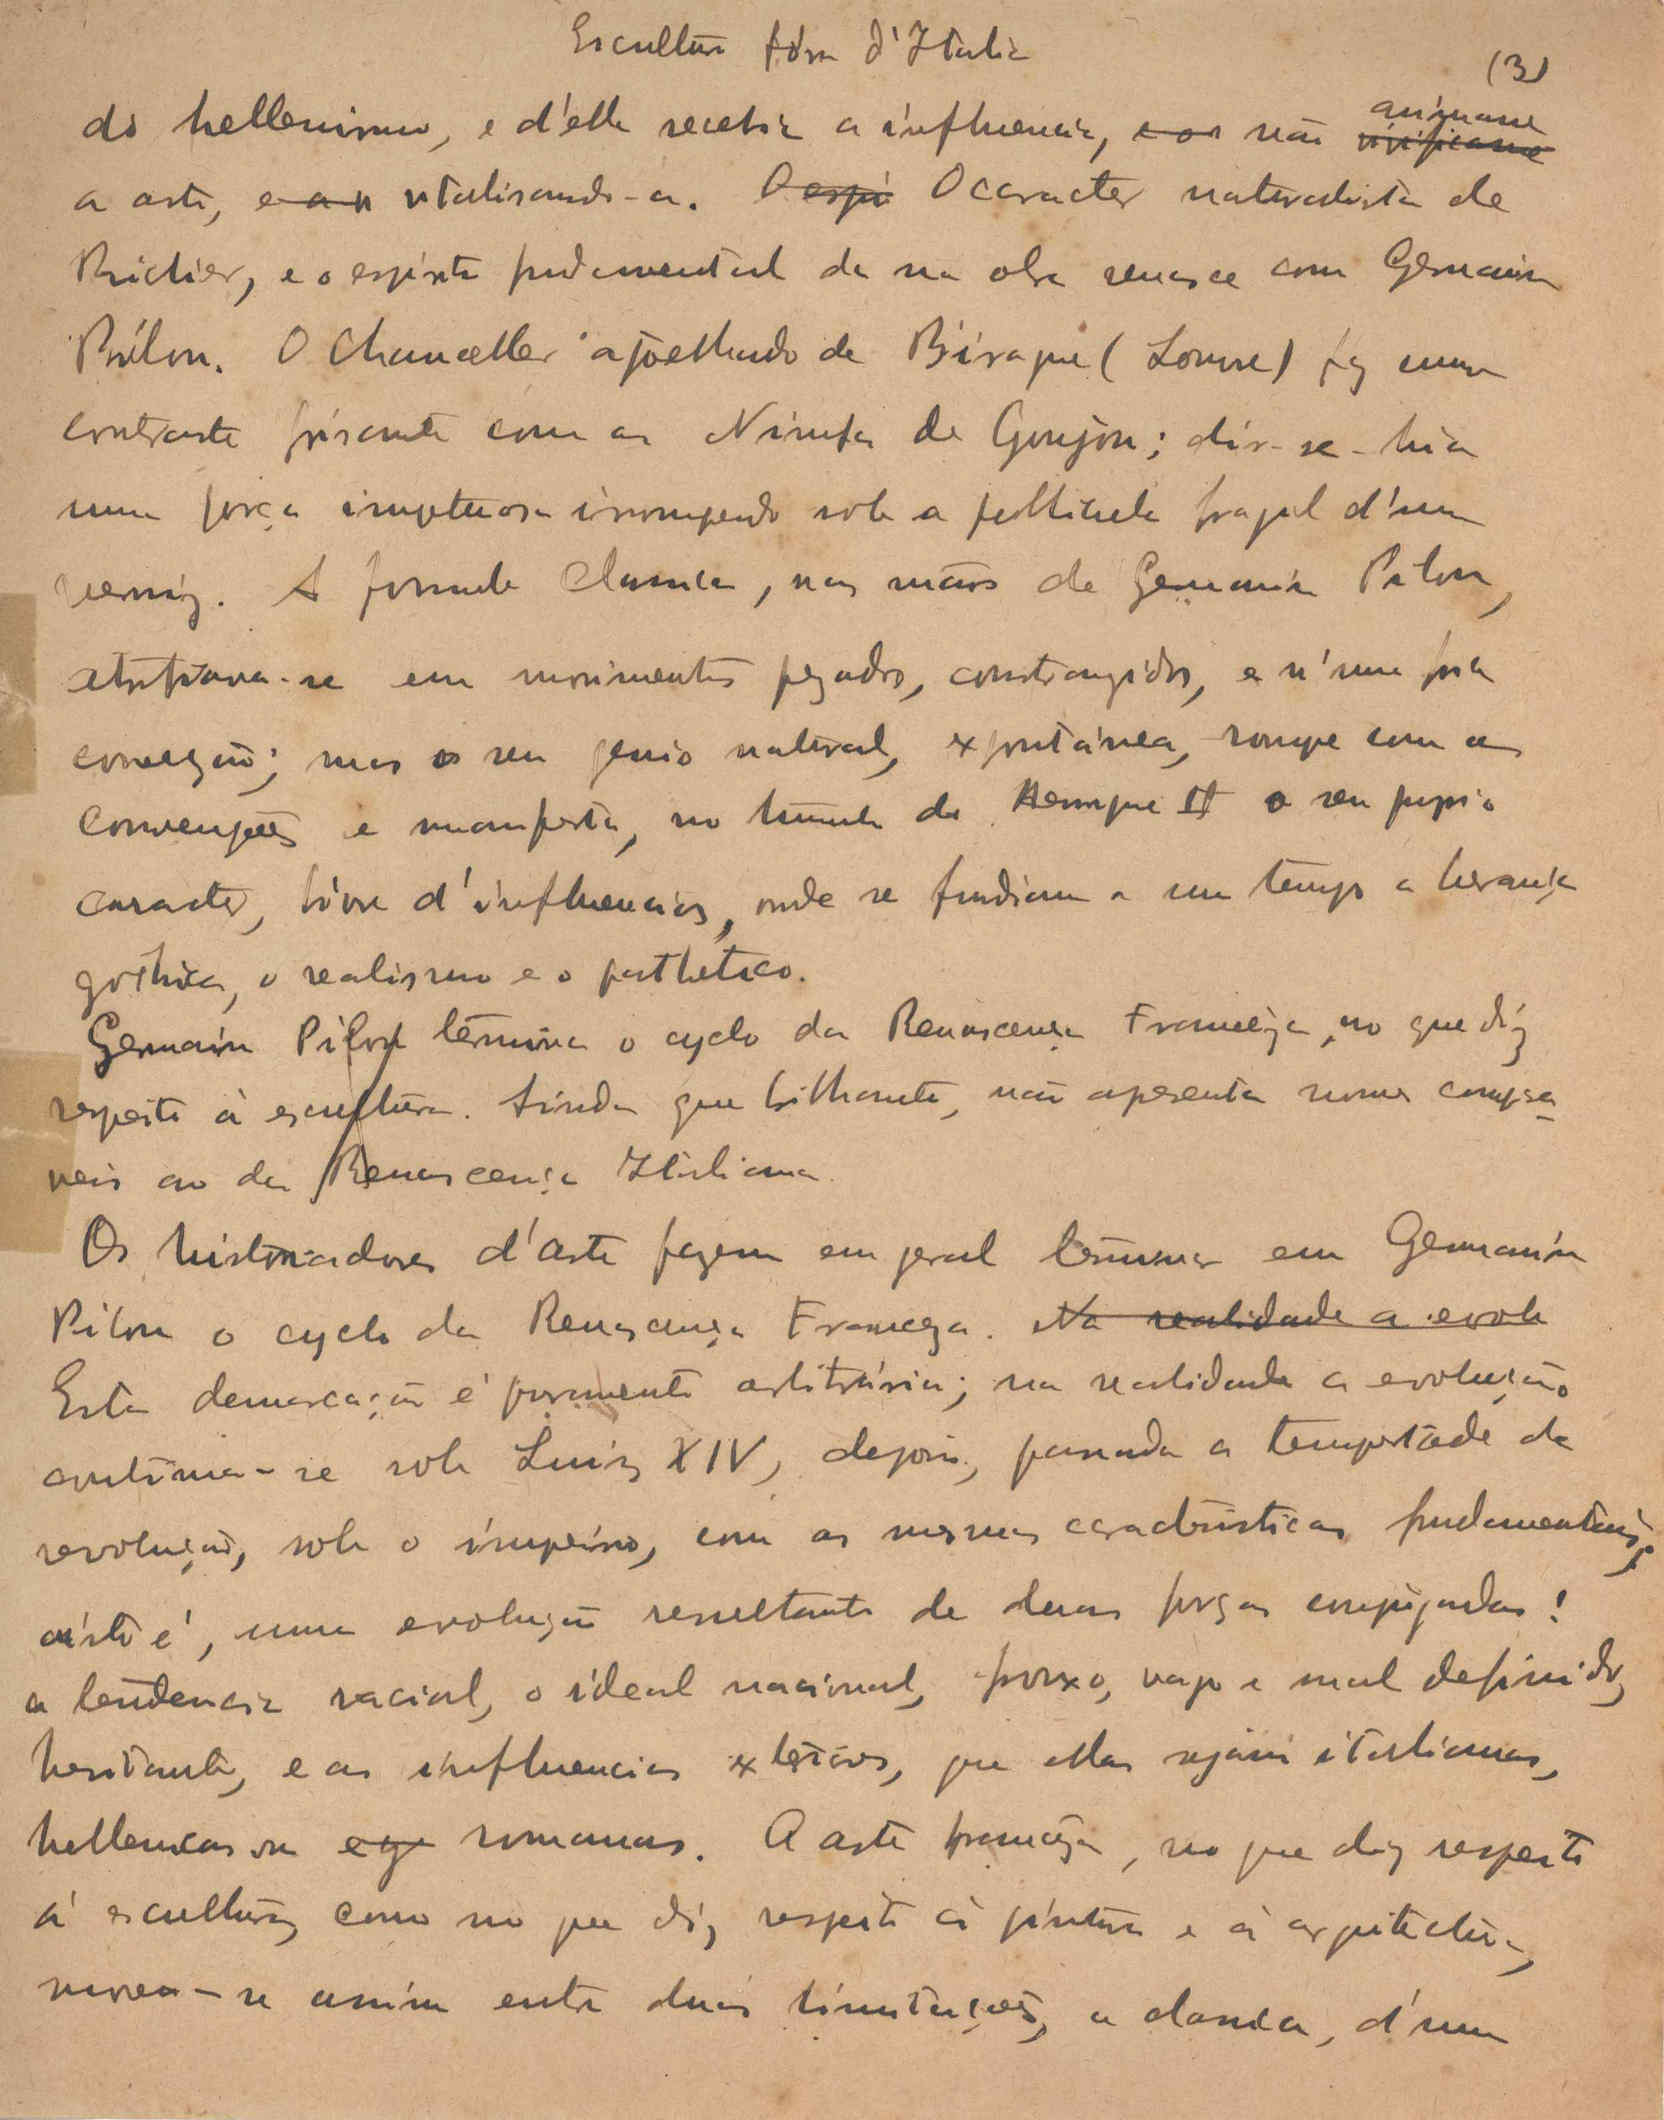 Escultura fóra d'Italia
(3)
do hellenismo, e d'elle recebia a influencia, e os não animasse
vivificasse
a arte, e a n vitalisando-a. O espi O caracter naturalista de
Richier, e o espirito fundamental da sua obra renasce com Germain
Pilon. O Chanceller ajoelhado de Birague (Louvre) faz um
contraste frisante com as Nimfas de Goujon; dir-se-hia
uma força impetuosa irrompendo sob a pellicula fragil d'um
verniz. A formula classica, nas mãos de Germain Pilon,
se em movimentos pezados, constrangidos, e n'uma fria
convenção; mas o seu genio natural, expontánea, rompe com as
convenções e manifesta, no tumulo de Henrique II o seu proprio
caracter, livre d'influencias, onde se fundiam a um tempo a herança
gothica, o realismo e o pathetico.
Germain Pilon termina o cyclo da Renascença Franceza, no que diz
respeito á escultura. Ainda que brilhante, não apresenta nomes compara
veis ao da Renascença Italiana.
Os historiadores d'arte fazem em geral terminar em Germain
Pilon o cyclo da Renascença Franceza. Na realidade a evolu
Esta demarcação é puramente arbitrária; na realidade a evolução
continua-se sob Luiz XIV, depois, passada a tempestade da
revolução, sob o imperio, com as mesmas caracteristicas fundamentais;
isto é, uma evolução resultante de duas forças conjugadas:
a tendencia racial, o ideal nacional, frouxo, vago e mal definido,
hesitante, e as influencias exteriores, que ellas sejam italianas,
hellenicas ou eg romanas. A arte franceza, no que diz respeito
á escultura, como no que diz respeito á pintura e á arquitectura,
move-se assim entre duas limitações, a classica, d'uma